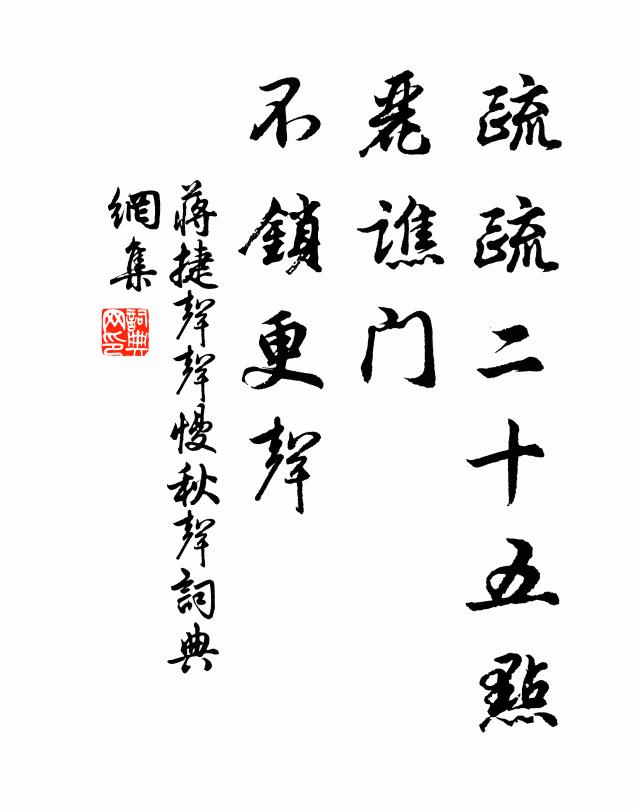 疏疏二十五點
麗譙門
不鎖更聲
蔣捷聲聲慢秋聲詞典
網集
詞典
网印